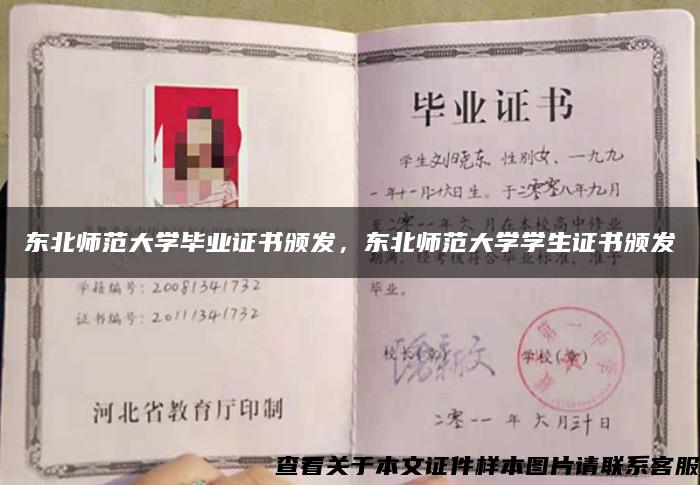 毕业证书
学生刘晓东 性别女、一九九
一年十一月十六日生。于二零零八年九月
至二零一一年六月在本校高中修业
期满，经考核符合毕业标准，准予
毕业。
东北师范大学毕业证书颁发，东北师范大学学生证书颁发
学籍编号：20081341732
证书编号：20111341732
校长(章)
学校(章)
第一中学
河北省教育厅印制
二零一一年六月三十日
查看关于本文证件样本图片请联系客服